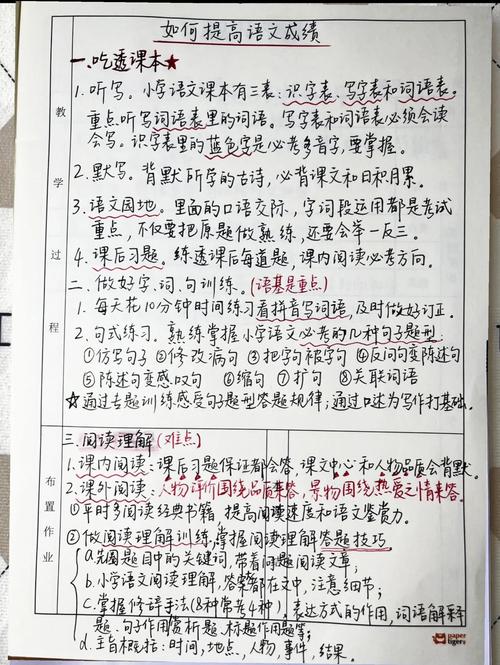 如何提高语文成绩
一.吃透课本★
1.听写。小学语文课本有三表:识字表、写字表和词语表。
重点听写词语表里的词语。写字表和词语表必须会读
会写。识字表里的蓝色字是必考多音字,要掌握。
2.默写。背默所学的古诗,必背课文和日积月累。
3.语文园地。里面的口语交际,字词段运用都是考试
重点,不仅要把原题做熟练,还要会举一反三。
4.课后习题。练透课后每道题,课内阅读必考方向。
二.做好字、词、句训练。(语基是重点)
1.每天花10分钟时间练习看拼音写词语,及时做好订正。
2.句式练习。熟练掌握小学语文必考的几种句子题型:
①仿写句子 ②修改病句 ③把字句被字句 ④反问句变陈述句
⑤陈述句变感叹句 ⑥缩句 ⑦扩句 ⑧关联词语
☆通过专题训练感受句子题型答题规律;通过口述为写作打基础。
教学过程
三.阅读理解(难点)
1.课内阅读:课后习题保证都会答,课文中心和人物品质会背默。
2.课外阅读:人物评价围绕品质来答,景物围绕热爱之情来答。
①平时多阅读经典书籍,提高阅读速度和语文鉴赏力。
②做阅读理解训练,掌握阅读理解答题技巧
a.先圈题目中的关键词,带着问题阅读文章;
b.小学语文阅读理解,答案都在文中,注意细节;
c.掌握修辞手法(8种常考4种),表达方式的作用,词语解释
题、句子作用赏析题、标题作用题等;
d.主旨概括:时间,地点,人物,事件,结果。
布置作业
paper
tiger